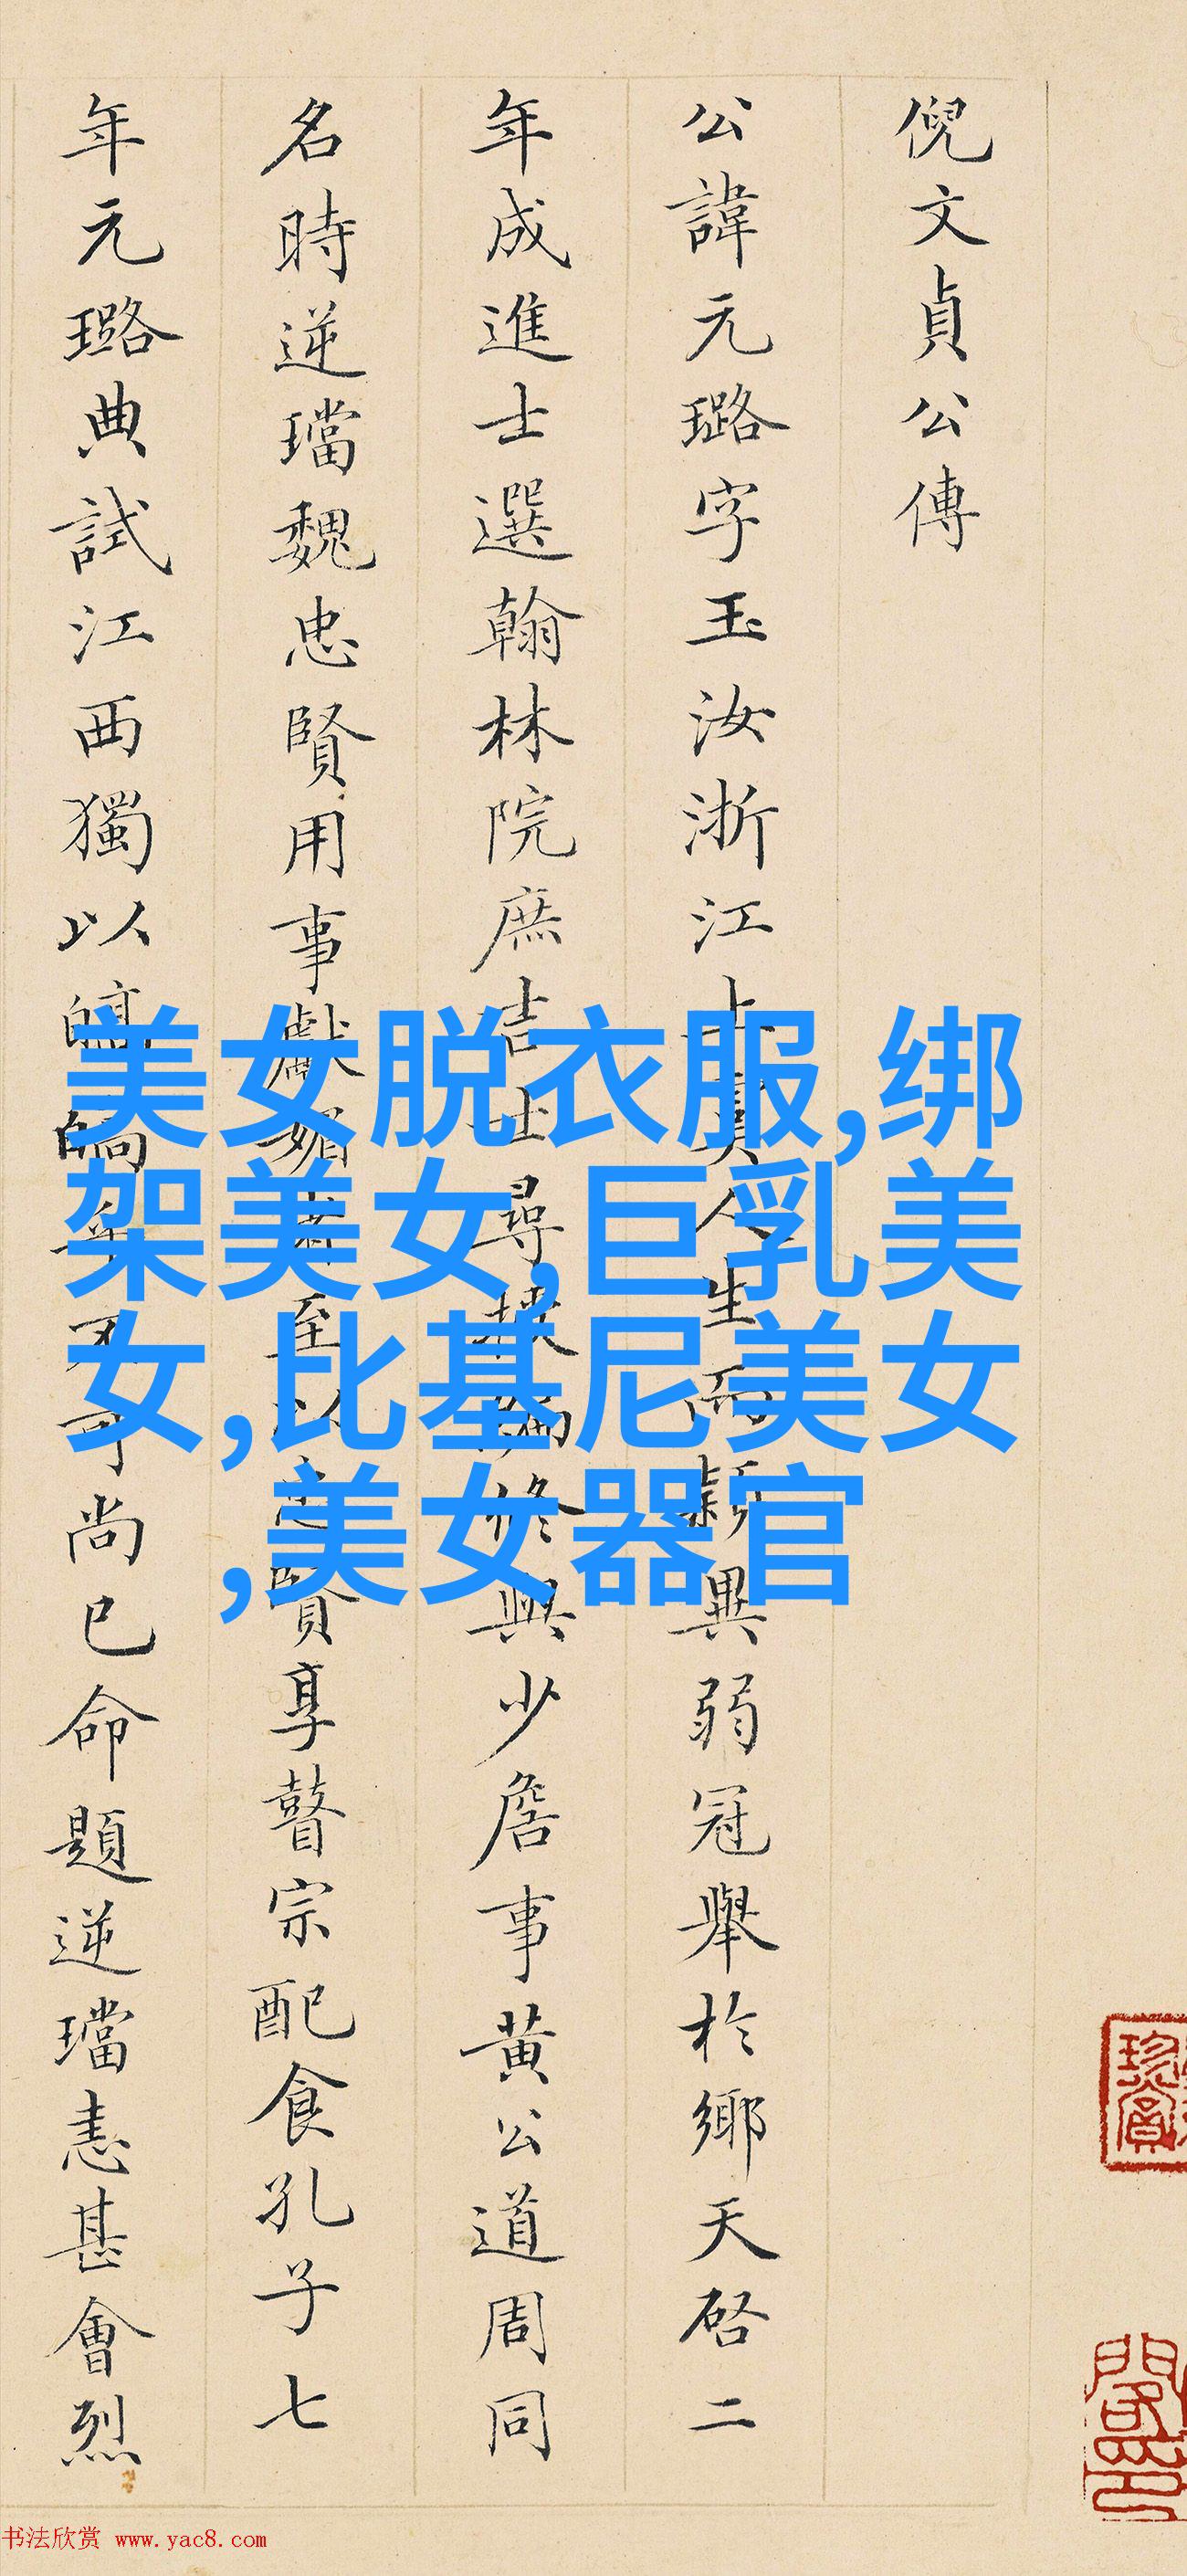 倪文貞公傳
公諱元璐字玉汝浙江上虞人生而穎異弱冠舉於鄉天啓二
年成進士選翰林院庶吉士尋授編修與少詹事黃公道周同
名時逆璫魏忠賢用事獻媚者至以忠賢享瞽宗配食孔子七
年元璐典試江西獨以皜皜乎不可尚已命題逆璫恚甚會烈
美女脱衣服,绑
架美女,巨乳美
女,比基尼美女
,美女器官
珍賞
书法欣赏 www.yac8.com